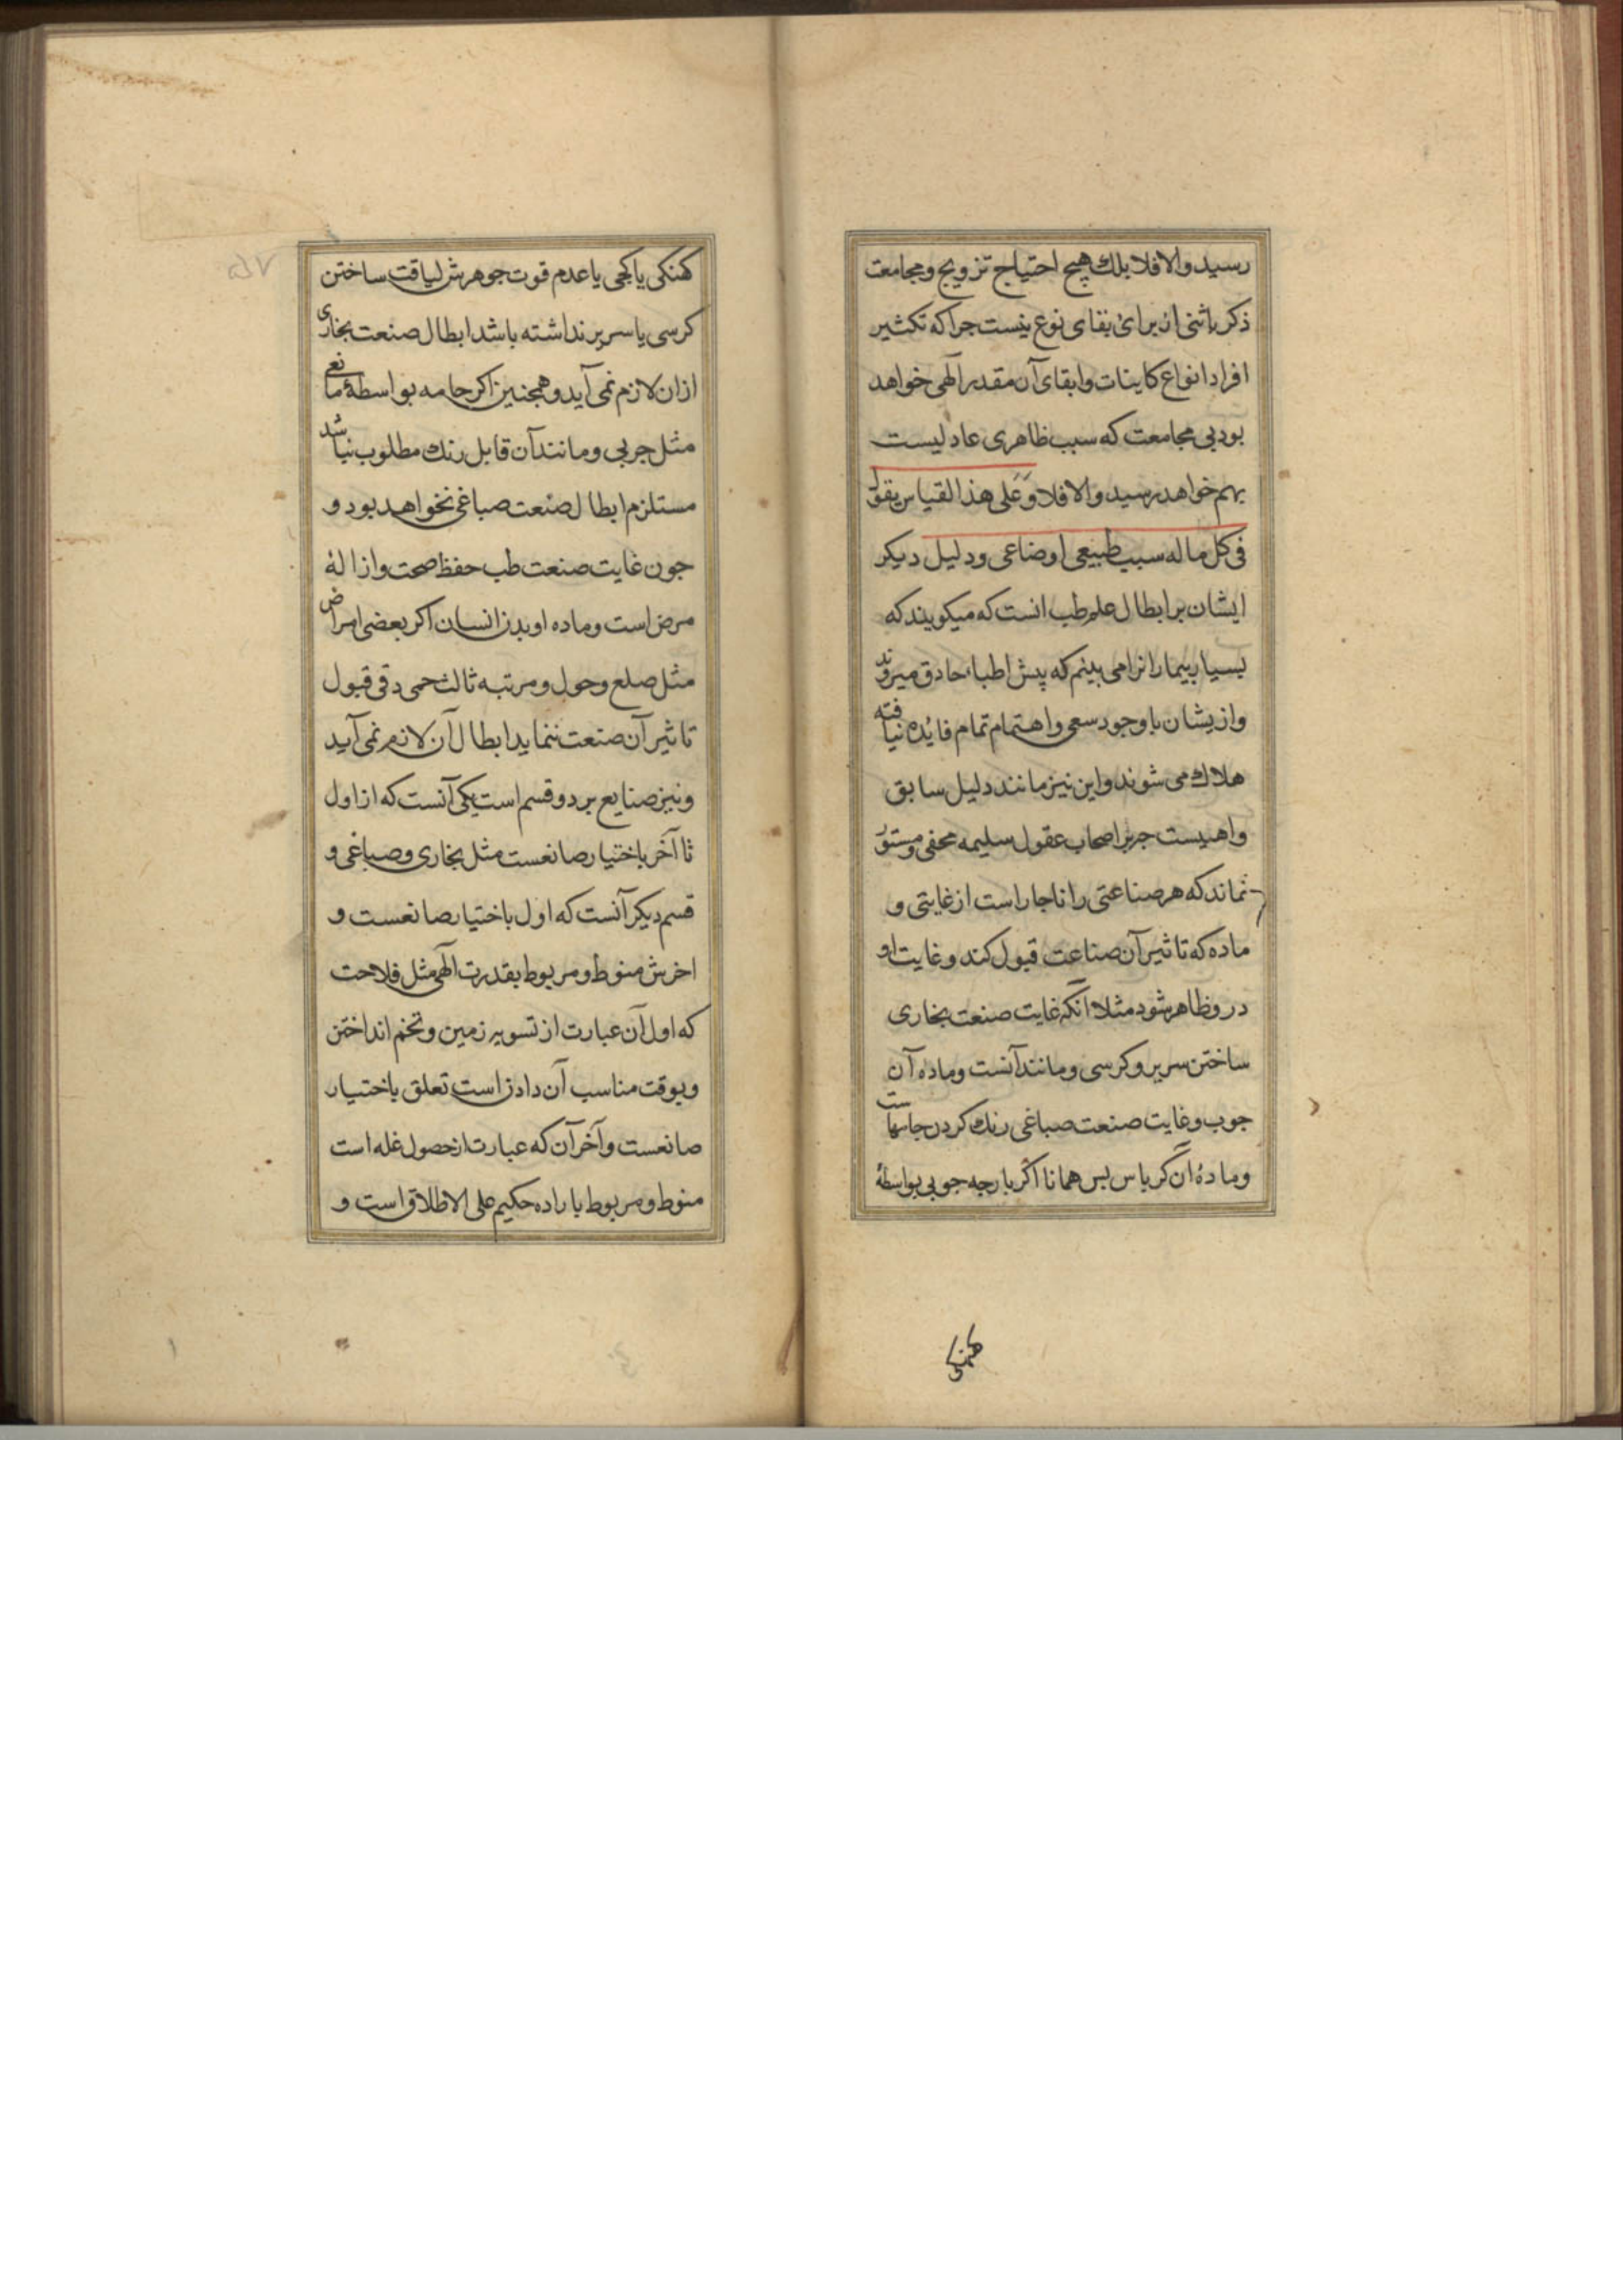 رسید والا فلا بلك هیچ احتیاج تزویج ومجامعت
ذکر باشی ان برای بقای نوع نیست جراکه تکثیر
افراد انواع کاینات وابقای آن مقدر آلهی خواهد
بود بی مجامعت که سبب ظاهری عادلیست
بهم خواهد رسید والا فلا وَعَلی هذا القیاس یقول
فی کل ماله سبب طبیعی اوضاعی ودلیل دیکر
ایشان بر ابطال علم طب انست که میکویند که
بسیار بیمارانرا می بینم که پیش اطباء حادق میروند
وازیشان باوجود سعی واهتمام تمام فایده نیافته
هلاك می شوند واین نیز مانند دلیل سابق
واهیست جه بر اصحاب عقول سلیمه مخفی ومستور
نماند که هر صناعتی را ناجار است از غایتی و
ماده که تاثیر آن صناعت قبول کند وغایت او
درو ظاهر شود مثلا انکه غایت صنعت نجاری
ساختن سریر وکرسی ومانند آنست وماده آن
جوب وغایت صنعت صباغی رنك کردن جامهاست
ومادهٔ ان کرباس بس همانا اکر بارجه جوبی بواسطهٔ
کهنکی
کهنکی یا کجی یا عدم قوت جوهرش لیاقت ساختن
کرسی یا سریر نداشته باشد ابطال صنعت نجاری
ازان لازم نمی آید وهمجنین اکر جامه بواسطهٔ مانعی
مثل جربی ومانند آن قابل رنك مطلوب نباشد
مستلزم ابطال صنعت صباغی نخواهد بود و
جون غایت صنعت طب حفظ صحت وازالهٔ
مرض است وماده او بدن انسان اکر بعضی امراض
مثل صلع وحول ومرتبه ثالث حمی دقی قبول
تاثیر آن صنعت ننماید ابطال آن لازم نمی آید
ونیز صنایع بر دو قسم است یکی آنست که از اول
تا آخر باختیار صانعست مثل نجاری وصباغی و
قسم دیکر آنست که اول باختیار صانعست و
اخرش منوط ومربوط بقدرت الهی مثل فلاحت
که اول آن عبارت از تسویه زمین وتخم انداختن
وبوقت مناسب آن دادن است تعلق باختیار
صانعست وآخر آن که عبارت از حصول غله است
منوط ومربوط باراده حکیم علی الاطلاق است و